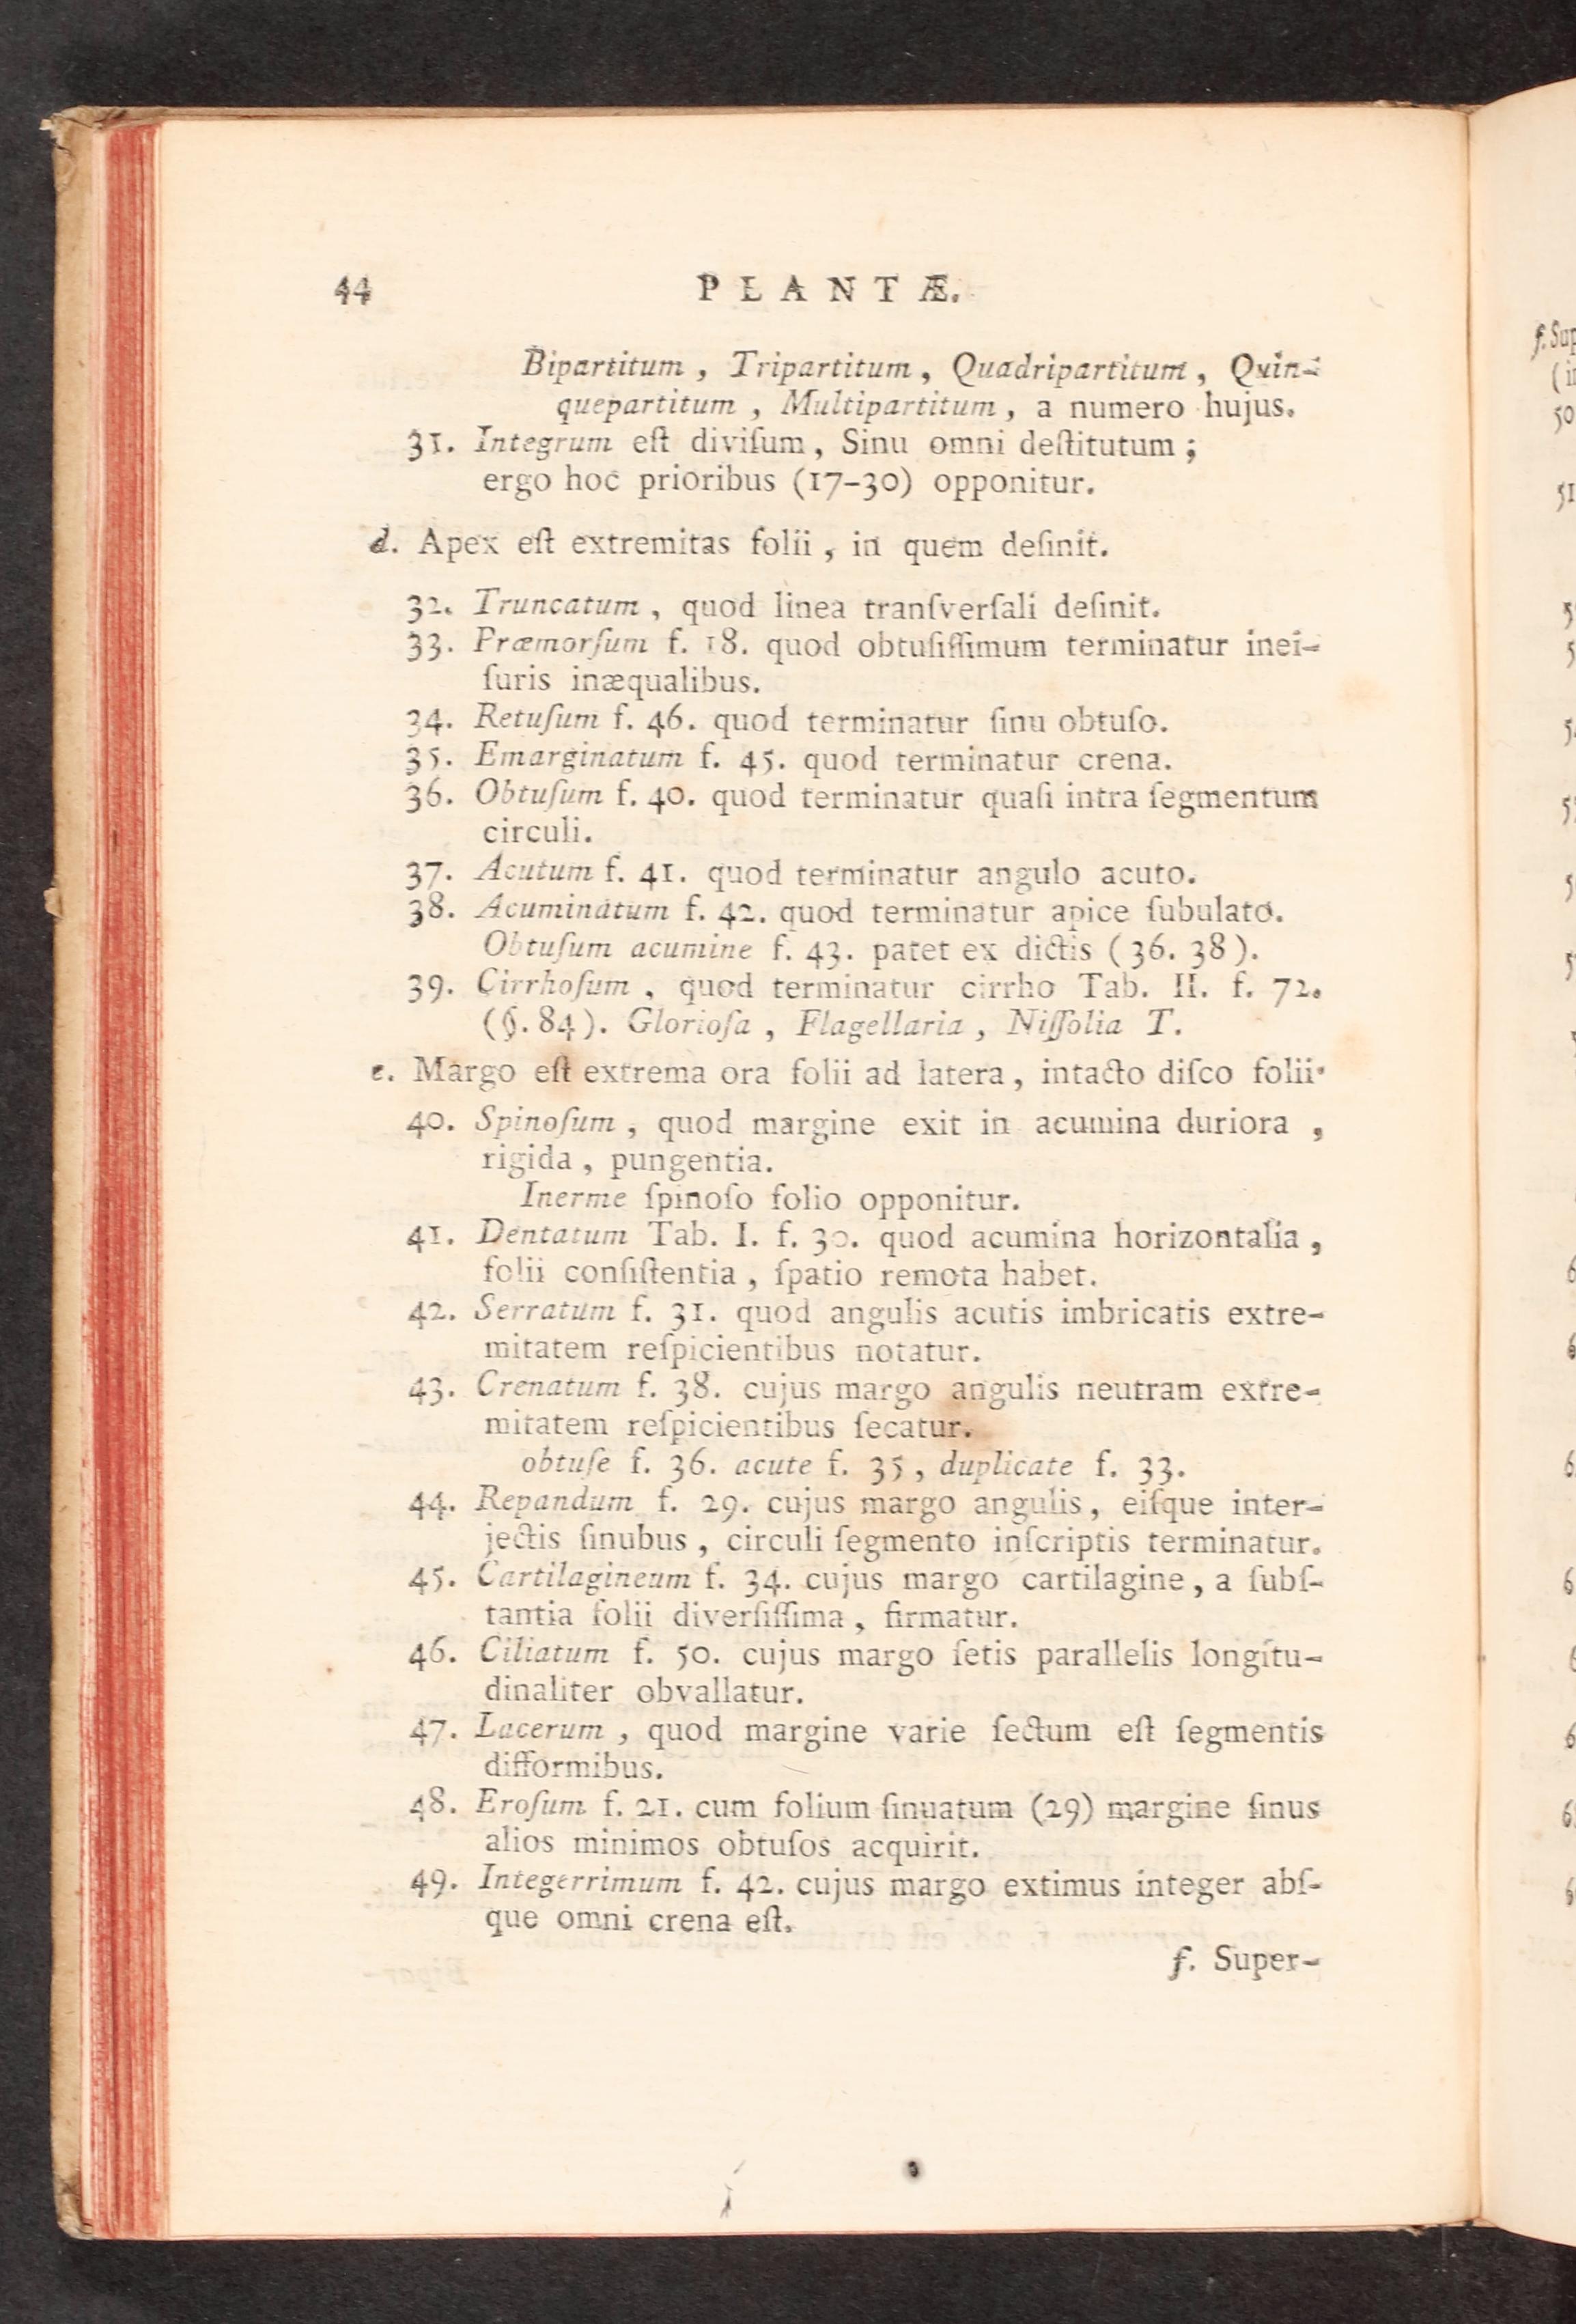 44 PLANTÆ.
Bipartitum, Tripartitum, Quadripartitum, Quin-
quepartitum, Multipartitum, a numero hujus.
31. Integrum eſt diviſum, Sinu omni deſtitutum;
ergo hoc prioribus (17-30) opponitur.
d. Apex eſt extremitas folii, in quem deſinit.
32. Truncatum, quod linea tranſverſali deſinit.
33. Præmorſum f. 18. quod obtuſiſſimum terminatur inei-
ſuris inæqualibus.
34. Retuſum f. 46. quod terminatur ſinu obtuſo.
35. Emarginatum f. 45. quod terminatur crena.
36. Obtuſum f. 40. quod terminatur quaſi intra ſegmentum
circuli.
37. Acutum f. 41. quod terminatur angulo acuto.
38. Acuminatum f. 42. quod terminatur apice ſubulato.
Obtuſum acumine f. 43. patet ex dictis (36. 38).
39. Cirrhoſum, quod terminatur cirrho Tab. II. f. 72.
(§. 84). Glorioſa, Flagellaria, Niſſolia T.
e. Margo eſt extrema ora folii ad latera, intacto diſco folii.
40. Spinoſum, quod margine exit in acumina duriora,
rigida, pungentia.
Inerme ſpinoſo folio opponitur.
41. Dentatum Tab. I. f. 30. quod acumina horizontalia,
folii conſiſtentia, ſpatio remota habet.
42. Serratum f. 31. quod angulis acutis imbricatis extre-
mitatem reſpicientibus notatur.
43. Crenatum f. 38. cujus margo angulis neutram extre-
mitatem reſpicientibus ſecatur.
obtuſe f. 36. acute f. 35, duplicate f. 33.
44. Repandum f. 29. cujus margo angulis, eiſque inter-
jectis ſinubus, circuli ſegmento inſcriptis terminatur.
45. Cartilagineum f. 34. cujus margo cartilagine, a ſubſ-
tantia folii diverſiſſima, firmatur.
46. Ciliatum f. 50. cujus margo ſetis parallelis longitu-
dinaliter obvallatur.
47. Lacerum, quod margine varie ſectum eſt ſegmentis
difformibus.
48. Eroſum f. 21. cum folium ſinuatum (29) margine ſinus
alios minimos obtuſos acquirit.
49. Integerrimum f. 42. cujus margo extimus integer abſ-
que omni crena eſt.
f. Super-